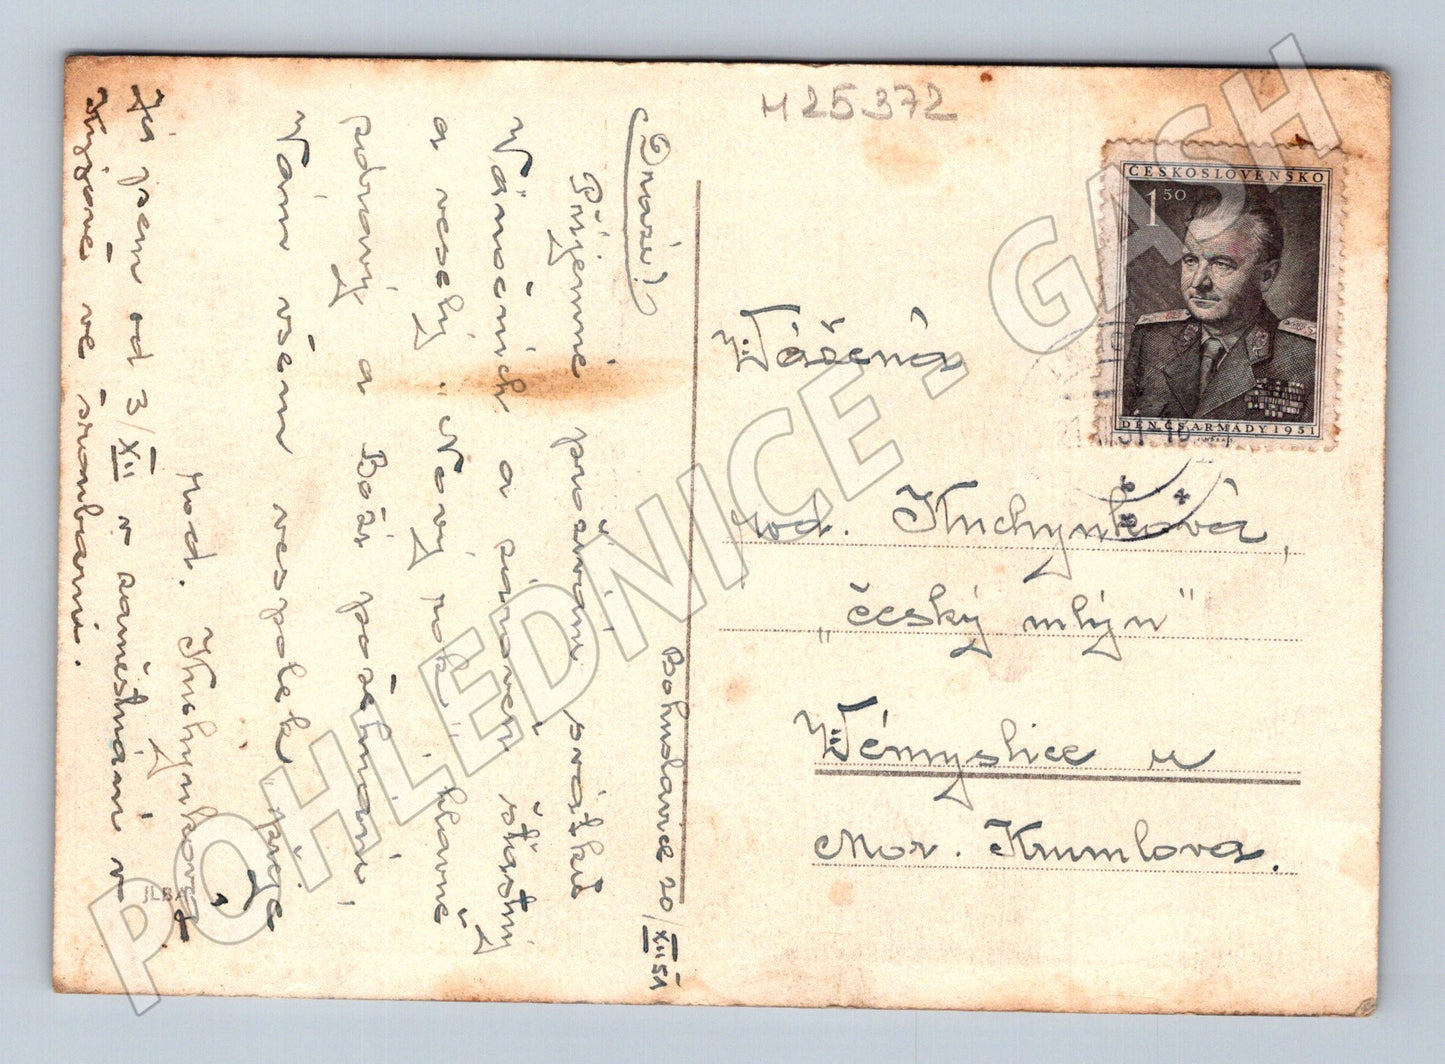 M 25372
ČESKOSLOVENSKO
1 50
DEN ČS. ARMÁDY 1951
21 XII 51-16
Vážená
rod. Kuchynkova,
„český mlýn"
Vémyslice u
Mor. Krumlova.
Bohuslavice 20/XII 51
Drazí!
Příjemné prožívání svátků
Vánočních a zároveň šťastný
a veselý „Nový rok", hlavně
zdravý a Boží požehnání,
Vám všem vespolek přeje
rod. Kuchynkova.
Já jsem od 3/XII v zaměstnání v
Kyjově ve šroubárni.
JLBA
POHLEDNICE - GASH